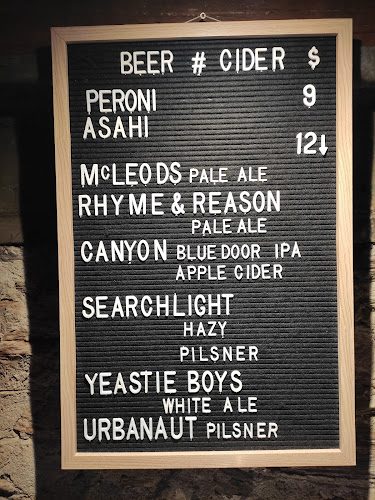 BEER # CIDER $
PERONI 9
ASAHI
12↓
McLEODS PALE ALE
RHYME & REASON
PALE ALE
CANYON BLUE DOOR IPA
APPLE CIDER
SEARCHLIGHT
HAZY
PILSNER
YEASTIE BOYS
WHITE ALE
URBANAUT PILSNER